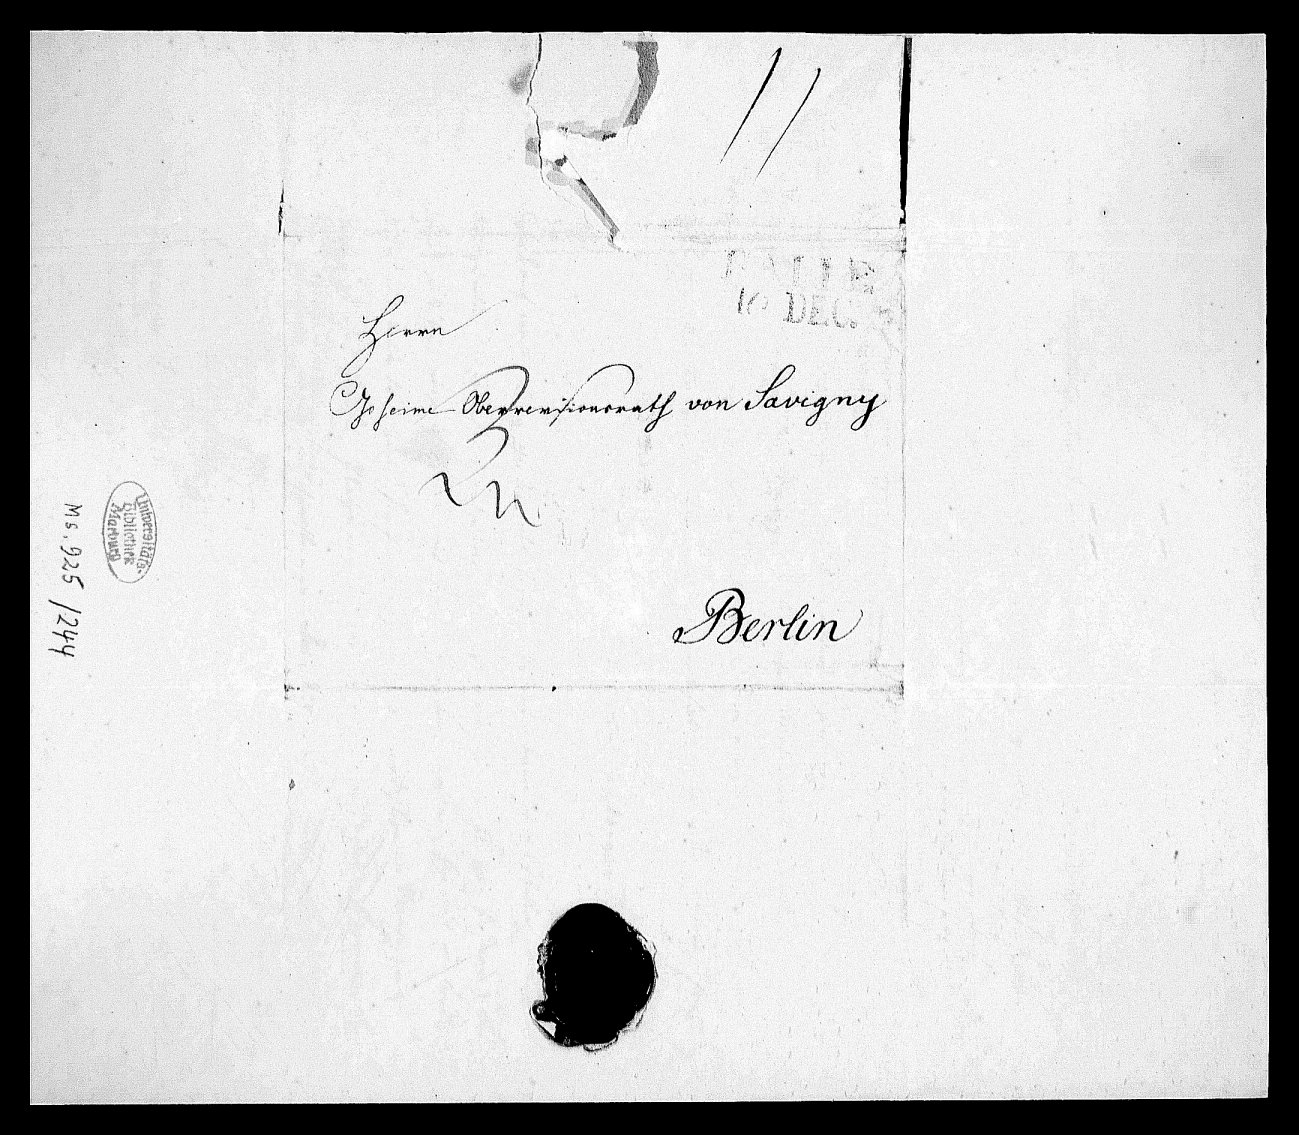 HALLE
10 DEC.
Herrn
Geheime Oberrevisionsrath von Savigny
Berlin
Universitäts-
Bibliothek
Marburg
Ms. 925/244